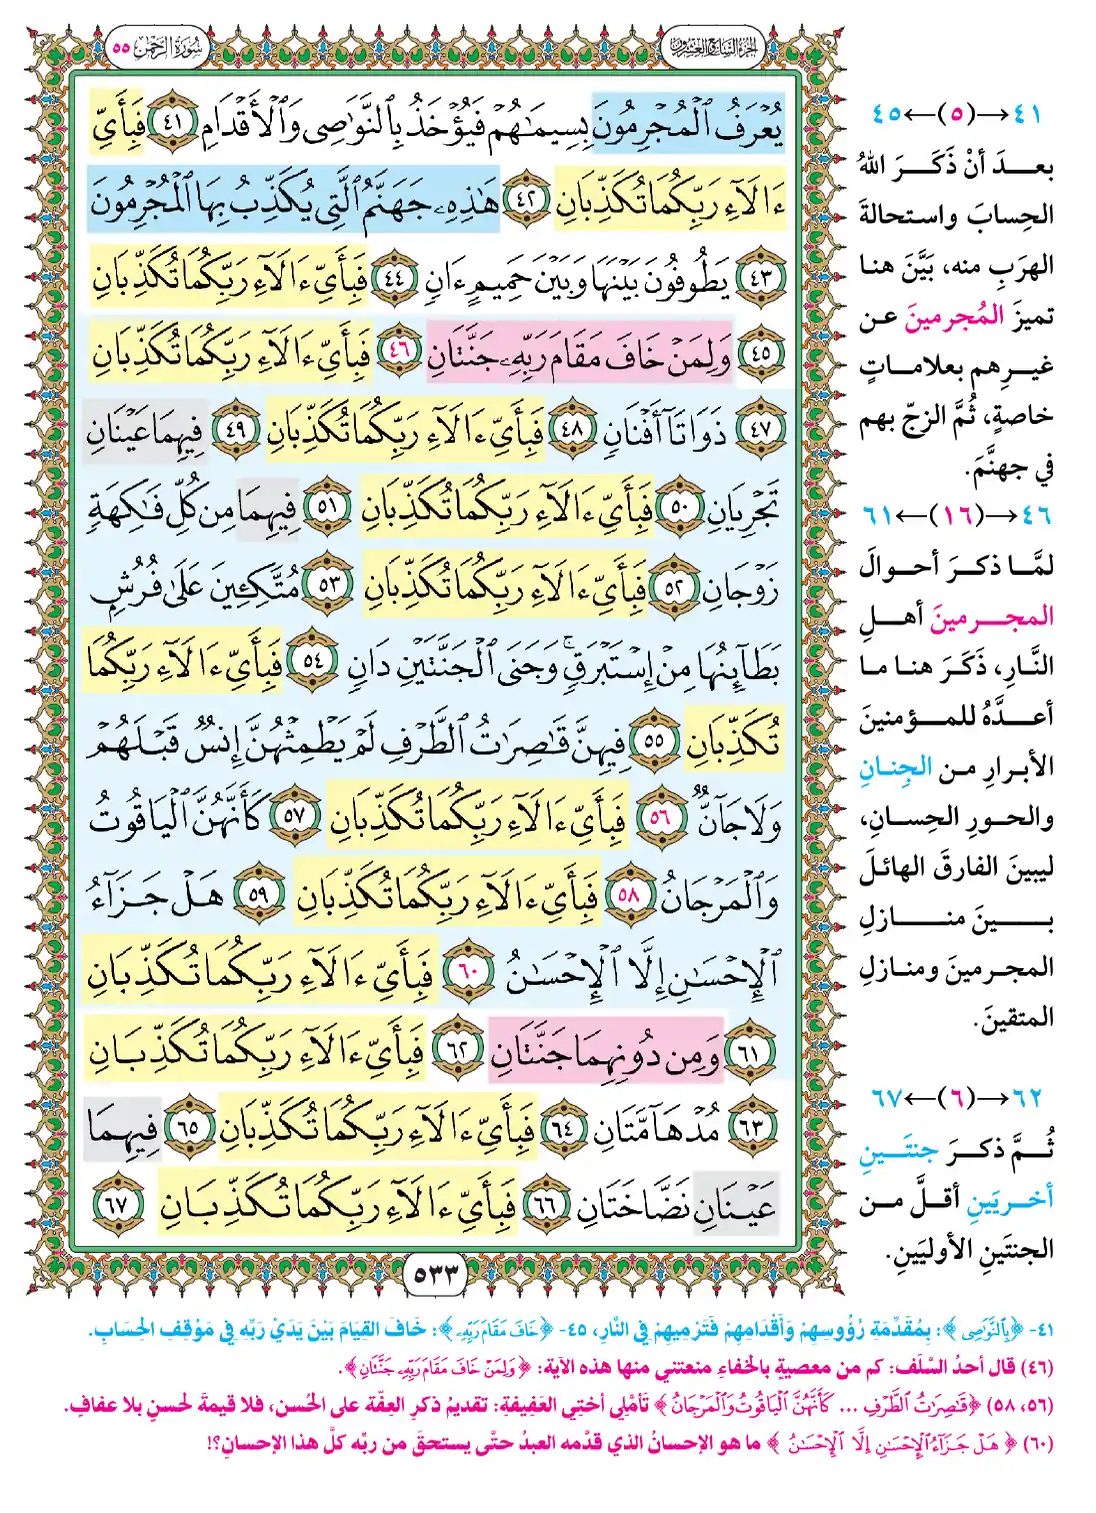 سُورَةُ الرَّحْمَٰن ٥٥
الجزء السابع والعشرون
يُعْرَفُ ٱلْمُجْرِمُونَ بِسِيمَٰهُمْ فَيُؤْخَذُ بِٱلنَّوَٰصِى وَٱلْأَقْدَامِ ٤١ فَبِأَىِّ
ءَالَآءِ رَبِّكُمَا تُكَذِّبَانِ ٤٢ هَٰذِهِۦ جَهَنَّمُ ٱلَّتِى يُكَذِّبُ بِهَا ٱلْمُجْرِمُونَ
٤٣ يَطُوفُونَ بَيْنَهَا وَبَيْنَ حَمِيمٍ ءَانٍ ٤٤ فَبِأَىِّ ءَالَآءِ رَبِّكُمَا تُكَذِّبَانِ
٤٥ وَلِمَنْ خَافَ مَقَامَ رَبِّهِۦ جَنَّتَانِ ٤٦ فَبِأَىِّ ءَالَآءِ رَبِّكُمَا تُكَذِّبَانِ
٤٧ ذَوَاتَآ أَفْنَانٍ ٤٨ فَبِأَىِّ ءَالَآءِ رَبِّكُمَا تُكَذِّبَانِ ٤٩ فِيهِمَا عَيْنَانِ
تَجْرِيَانِ ٥٠ فَبِأَىِّ ءَالَآءِ رَبِّكُمَا تُكَذِّبَانِ ٥١ فِيهِمَا مِن كُلِّ فَٰكِهَةٍ
زَوْجَانِ ٥٢ فَبِأَىِّ ءَالَآءِ رَبِّكُمَا تُكَذِّبَانِ ٥٣ مُتَّكِـِٔينَ عَلَىٰ فُرُشٍۭ
بَطَآئِنُهَا مِنْ إِسْتَبْرَقٍ ۚ وَجَنَى ٱلْجَنَّتَيْنِ دَانٍ ٥٤ فَبِأَىِّ ءَالَآءِ رَبِّكُمَا
تُكَذِّبَانِ ٥٥ فِيهِنَّ قَٰصِرَٰتُ ٱلطَّرْفِ لَمْ يَطْمِثْهُنَّ إِنسٌ قَبْلَهُمْ
وَلَا جَآنٌّ ٥٦ فَبِأَىِّ ءَالَآءِ رَبِّكُمَا تُكَذِّبَانِ ٥٧ كَأَنَّهُنَّ ٱلْيَاقُوتُ
وَٱلْمَرْجَانُ ٥٨ فَبِأَىِّ ءَالَآءِ رَبِّكُمَا تُكَذِّبَانِ ٥٩ هَلْ جَزَآءُ
ٱلْإِحْسَٰنِ إِلَّا ٱلْإِحْسَٰنُ ٦٠ فَبِأَىِّ ءَالَآءِ رَبِّكُمَا تُكَذِّبَانِ
٦١ وَمِن دُونِهِمَا جَنَّتَانِ ٦٢ فَبِأَىِّ ءَالَآءِ رَبِّكُمَا تُكَذِّبَانِ
٦٣ مُدْهَآمَّتَانِ ٦٤ فَبِأَىِّ ءَالَآءِ رَبِّكُمَا تُكَذِّبَانِ ٦٥ فِيهِمَا
عَيْنَانِ نَضَّاخَتَانِ ٦٦ فَبِأَىِّ ءَالَآءِ رَبِّكُمَا تُكَذِّبَانِ ٦٧
٥٣٣
٤١→(٥)←٤٥
بعدَ أنْ ذَكَرَ اللهُ
الحِسابَ واستحالةَ
الهرَبِ منه، بَيَّنَ هنا
تميزَ المُجرمينَ عن
غيرِهم بعلاماتٍ
خاصةٍ، ثُمَّ الزجّ بهم
في جهنَّمَ.
٤٦→(١٦)←٦١
لمَّا ذكرَ أحوالَ
المجرمينَ أهلِ
النَّارِ، ذَكَرَ هنا ما
أعدَّهُ للمؤمنينَ
الأبرارِ من الجِنانِ
والحورِ الحِسانِ،
ليبينَ الفارقَ الهائلَ
بينَ منازلِ
المجرمينَ ومنازلِ
المتقينَ.
٦٢→(٦)←٦٧
ثُمَّ ذكرَ جنتَينِ
أخريَينِ أقلَّ من
الجنتَينِ الأوليَينِ.
٤١- ﴿بِٱلنَّوَٰصِى﴾: بِمُقَدِّمَةِ رُؤُوسِهِمْ وَأَقْدَامِهِمْ فَتَرْمِيهِمْ فِي النَّارِ، ٤٥- ﴿خَافَ مَقَامَ رَبِّهِۦ﴾: خَافَ القِيَامَ بَيْنَ يَدَيْ رَبِّهِ فِي مَوْقِفِ الحِسَابِ.
(٤٦) قال أحدُ السَّلَف: كم من معصيةٍ بالخفاءِ منعتني منها هذه الآية: ﴿وَلِمَنْ خَافَ مَقَامَ رَبِّهِۦ جَنَّتَانِ﴾.
(٥٦، ٥٨) ﴿قَٰصِرَٰتُ ٱلطَّرْفِ ... كَأَنَّهُنَّ ٱلْيَاقُوتُ وَٱلْمَرْجَانُ﴾ تأمَّلِي أختِي العَفِيفةِ: تقديمُ ذكرِ العِفّة على الحُسن، فلا قيمةَ لحسنٍ بلا عفافٍ.
(٦٠) ﴿هَلْ جَزَآءُ ٱلْإِحْسَٰنِ إِلَّا ٱلْإِحْسَٰنُ﴾ ما هو الإحسانُ الذي قدَّمه العبدُ حتَّى يستحقَ من ربِّه كلَّ هذا الإحسانِ؟!